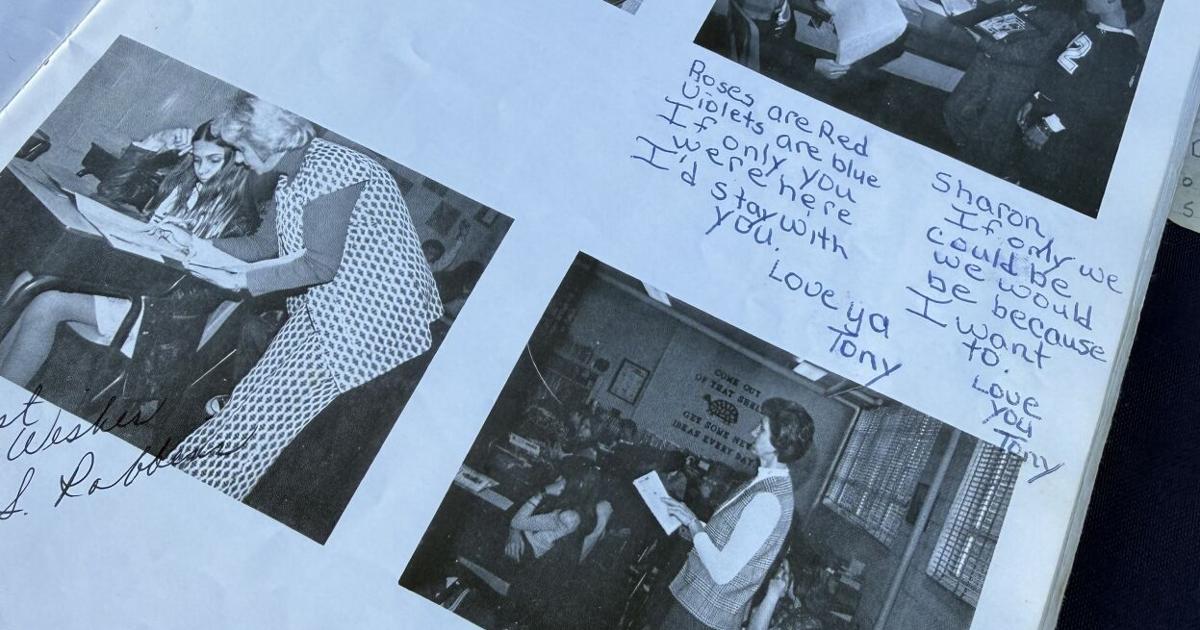 2
Roses are Red
Violets are blue
If only you
were here
I'd stay with
you.
Love ya
Tony
Sharon
If only we
could be
we would
be because
I want
to.
Love
you
Tony
Wishes
COME OUT
OF THAT SHELL
GET SOME NEW
IDEAS EVERY DAY